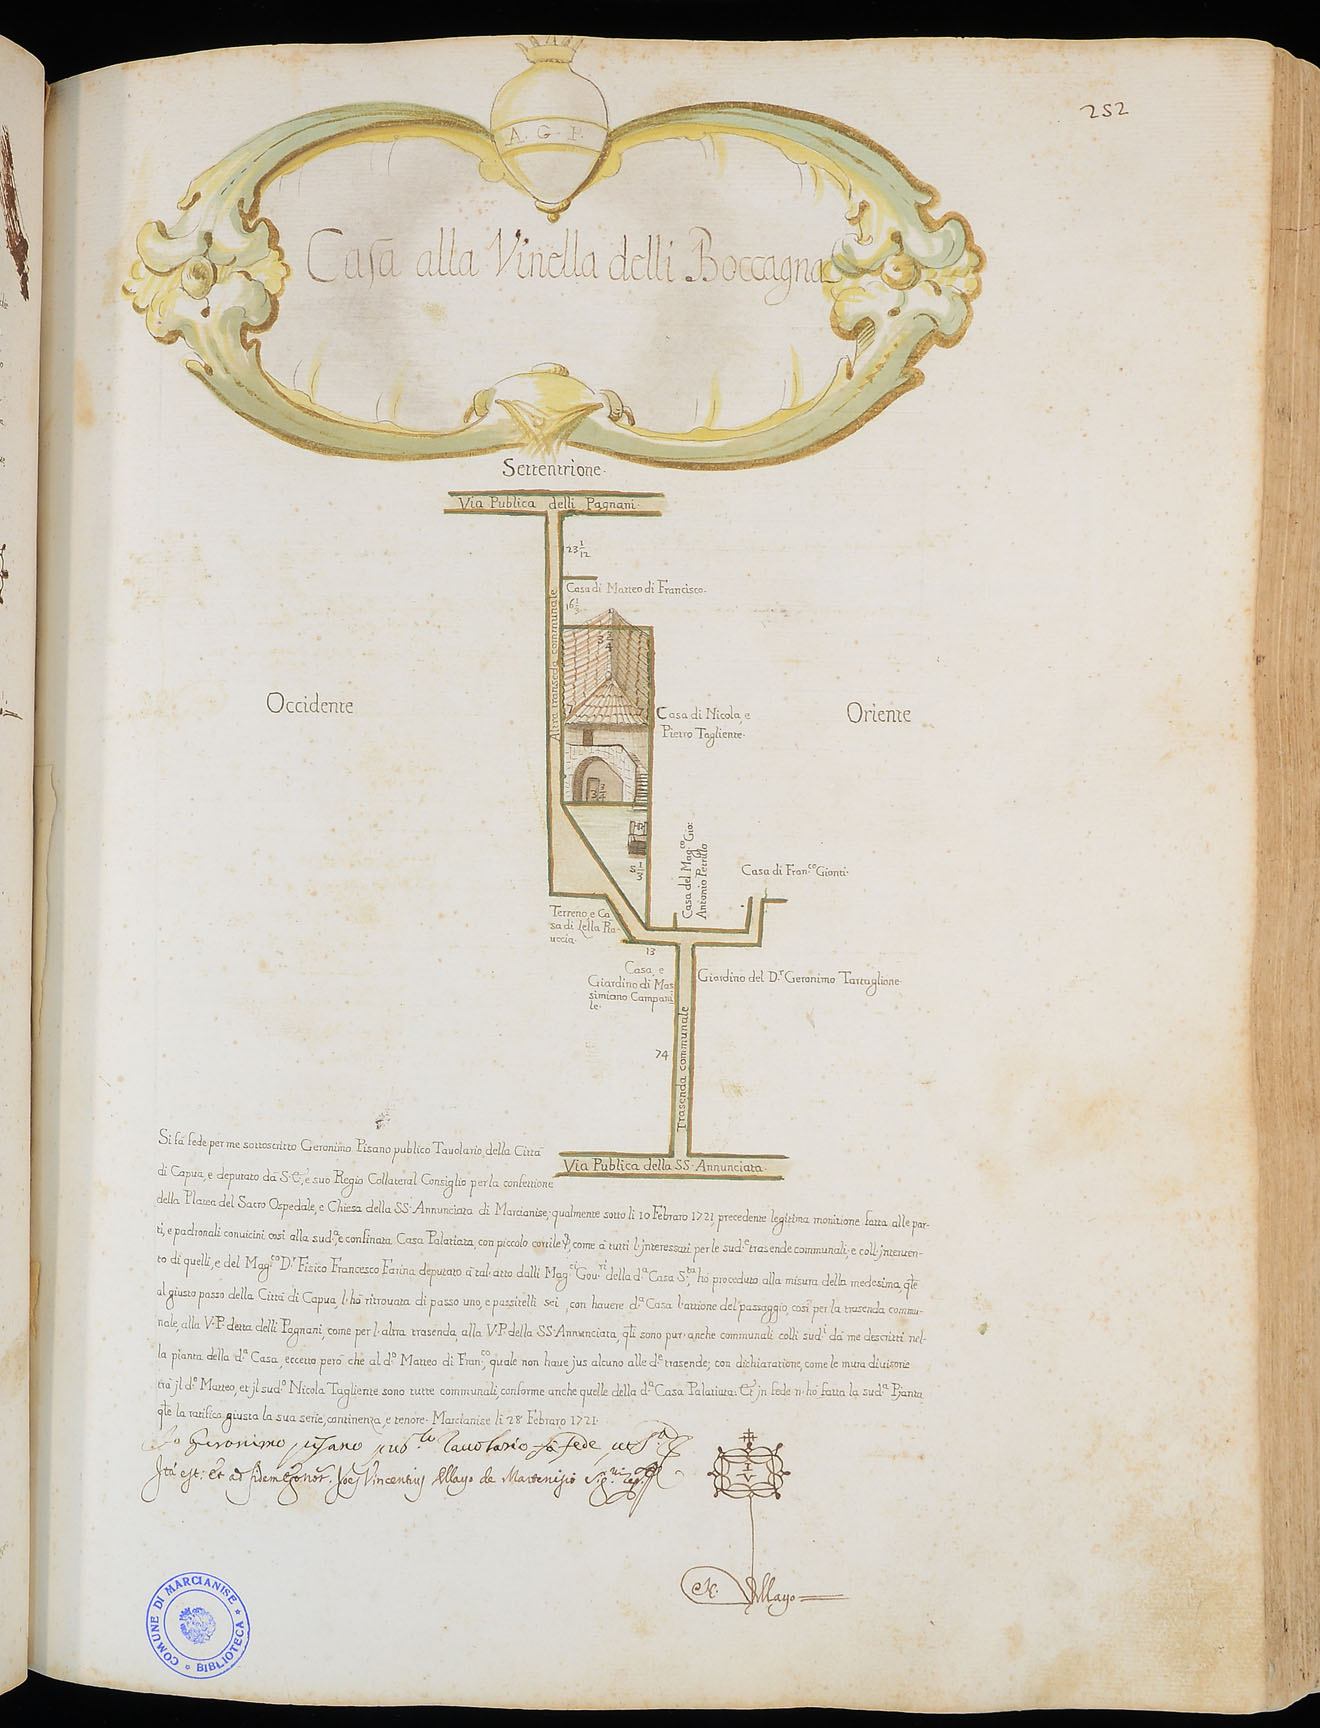 252
A. G. P.
Casa alla Vinella delli Boccagna
Settentrione.
Via Publica delli Pagnani.
23 1/12
Casa di Matteo di Francisco.
16 1/3
3 3/4
Altra transeda communale
Occidente
Oriente
7
Casa di Nicola, e
Pietro Tagliente.
3 3/4
5 1/3
Casa del Mag.co Gio:
Antonio Petrillo
Casa di Fran.co Gionti.
Terreno, e Ca
sa di Lella Ra-
uccia.
13
Casa, e
Giardino di Mas
simiano Campani
le.
Giardino del D.r Geronimo Tartaglione.
74
Trasenda communale
Via Publica della SS. Annunciata.
Si fà fede per me sottoscritto Geronimo Pisano publico Tauolario della Città
di Capua, e deputato dà S. E., e suo Regio Collateral Consiglio per la confettione
della Platea del Sacro Ospedale, e Chiesa della SS. Annunciata di Marcianise, qualmente sotto li 10 Febraro 1721, precedente legitima monitione fatta alle par-
ti, e padronali conuicini, così alla sud.a, e confinata Casa Palatiata, con piccolo cortile, come à tutti l'interessati per le sud.e trasende communali, e coll'interuen-
to di quelli, e del Mag.co D.r Fisico Francesco Farina deputato à tal'atto dalli Mag.ci Gou.ri della d.a Casa S.ta hò proceduto alla misura della medesima, q̃le
al giusto passo della Città di Capua, l'hò ritrouata di passo uno, e passitelli sei, con hauere d.a Casa l'attione del passaggio, così per la trasenda commu-
nale, alla V.P. detta delli Pagnani, come per l'altra trasenda, alla V.P. della SS. Annunciata, q̃li sono pur'anche communali colli sud.i dà me descritti nel-
la pianta della d.a Casa, eccetto però che al d.o Matteo di Fran.co, quale non haue jus alcuno alle d.e trasende; con dichiaratione, come le mura diuisorie
trà jl d.o Matteo, et jl sud.o Nicola Tagliente sono tutte communali, conforme anche quelle della d.a Casa Palatiata: Et jn fede n'hò fatta la sud.a Pianta
q̃le la ratifico giusta la sua serie, continenza, e tenore. Marcianise li 28 Febraro 1721.
Io Geronimo pisano pub.co Tauolario fò fede ut s.a
Ità est: Et ad fidem Ego Not. Joes Vincentius Mayo de Marcenisio
I
V
N. Mayo
COMUNE DI MARCIANISE * BIBLIOTECA *